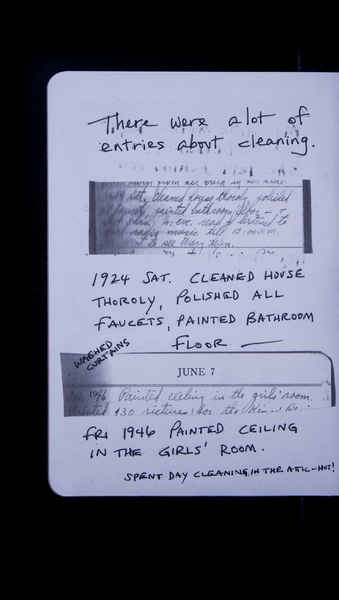 There were a lot of
entries about cleaning.
Sat, cleaned house thoroly, polished
painted bathroom floor
music till 12:00 P.M.
1924 SAT. CLEANED HOUSE
THOROLY, POLISHED ALL
FAUCETS, PAINTED BATHROOM
FLOOR —
WASHED
CURTAINS
JUNE 7
1946 Painted ceiling in the girls' room.
130 pictures for the
FRI 1946 PAINTED CEILING
IN THE GIRLS' ROOM.
SPENT DAY CLEANING IN THE ATTIC-HOT!